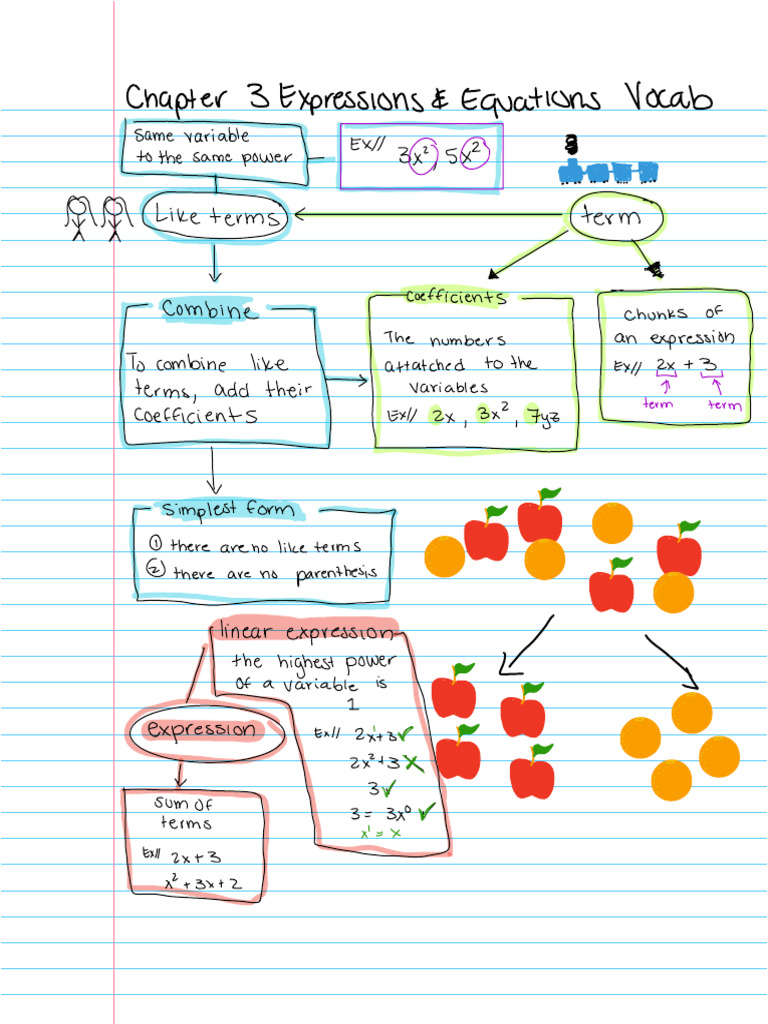 Chapter 3 Expressions & Equations Vocab
Same variable
to the same power
Ex// 3x², 5x²
Like terms
term
Combine
To combine like
terms, add their
coefficients
Coefficients
The numbers
attatched to the
variables
Ex// 2x, 3x², 7yz
Chunks of
an expression
Ex// 2x + 3
term term
Simplest form
① there are no like terms
② there are no parenthesis
linear expression
the highest power
of a variable is
1
Ex// 2x¹+3 ✓
2x²+3 ✗
3 ✓
3 = 3x⁰ ✓
x¹ = x
expression
sum of
terms
Ex// 2x+3
x²+3x+2